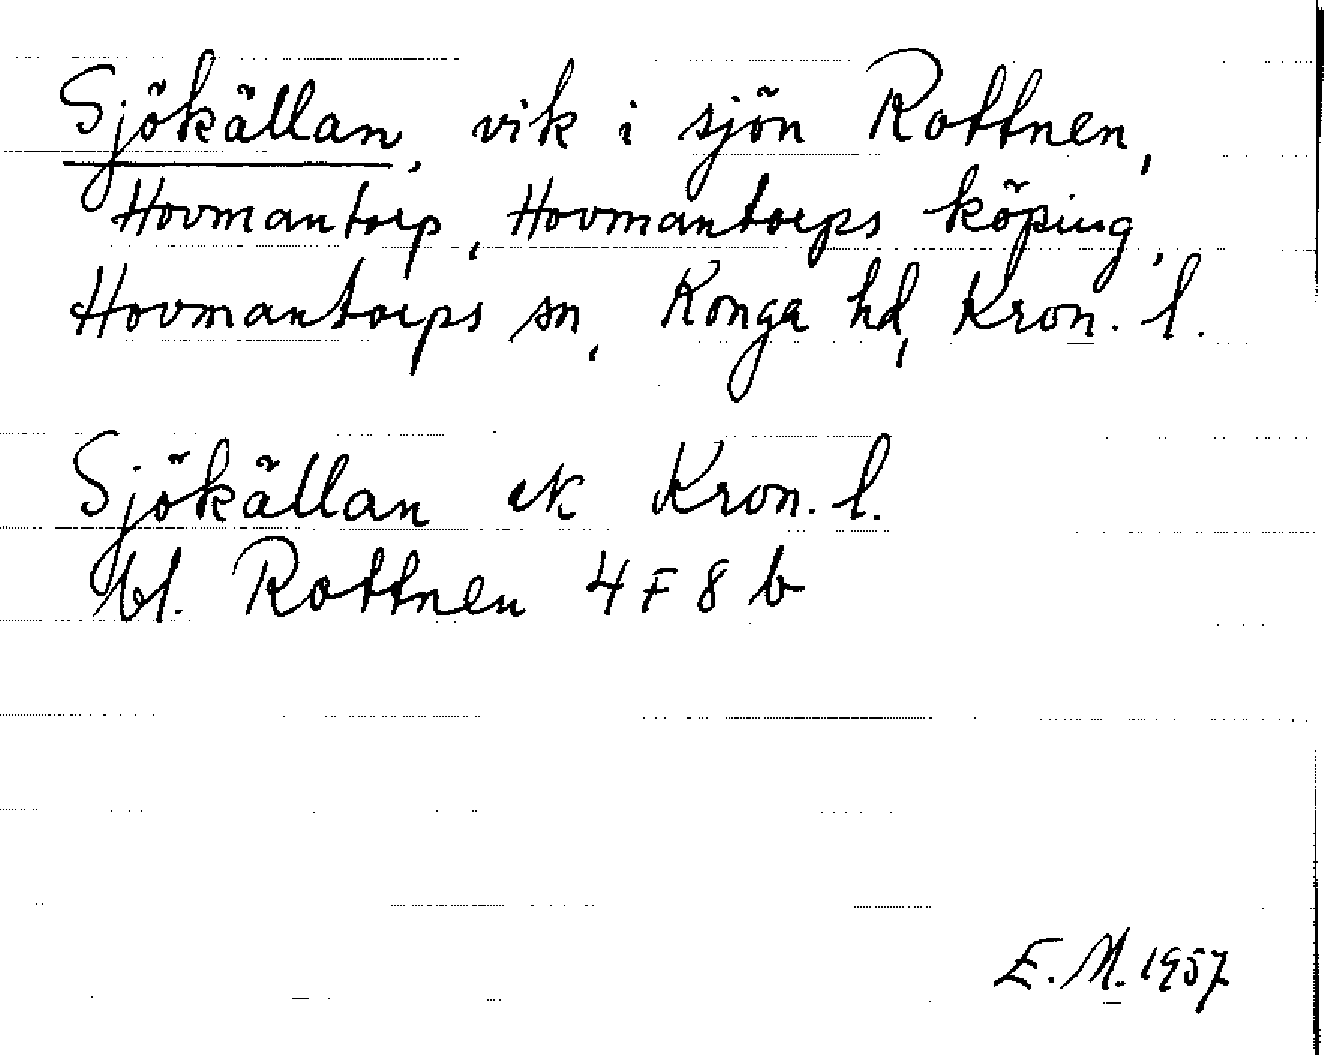 Sjökällan, vik i sjön Rottnen,
Hovmantorp, Hovmantorps köping,
Hovmantorps sn, Konga hd, Kron. l.
Sjökällan ek Kron. l.
bl. Rottnen 4 F 8 b
E. M. 1957